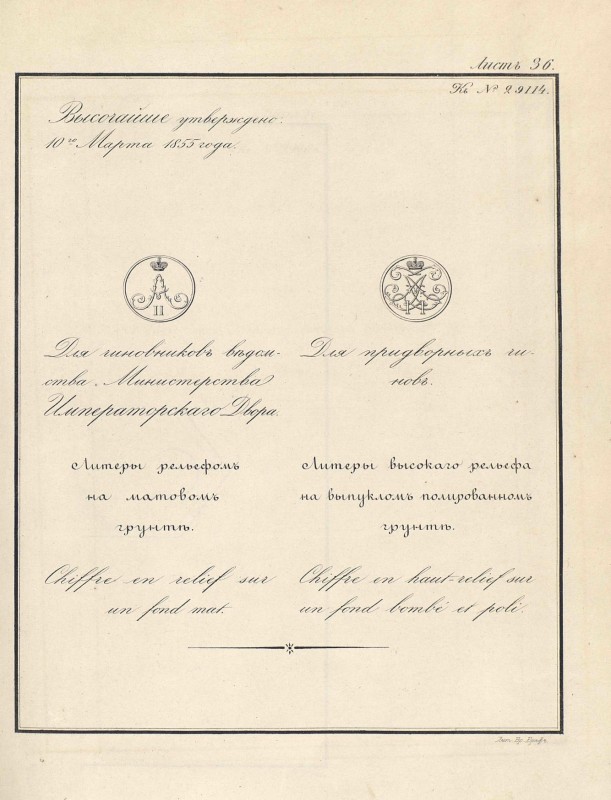 Листъ 36.
Къ № 29114.
Высочайше утверждено:
10го Марта 1855 года.
А
II
Для чиновниковъ вѣдом-
ства Министерства
Императорскаго Двора.
Для придворныхъ чи-
новъ.
Литеры рельефомъ
на матовомъ
грунтѣ.
Литеры высокаго рельефа
на выпукломъ полированном
грунтѣ.
Chiffre en relief sur
un fond mat.
Chiffre en haut-relief sur
un fond bombé et poli.